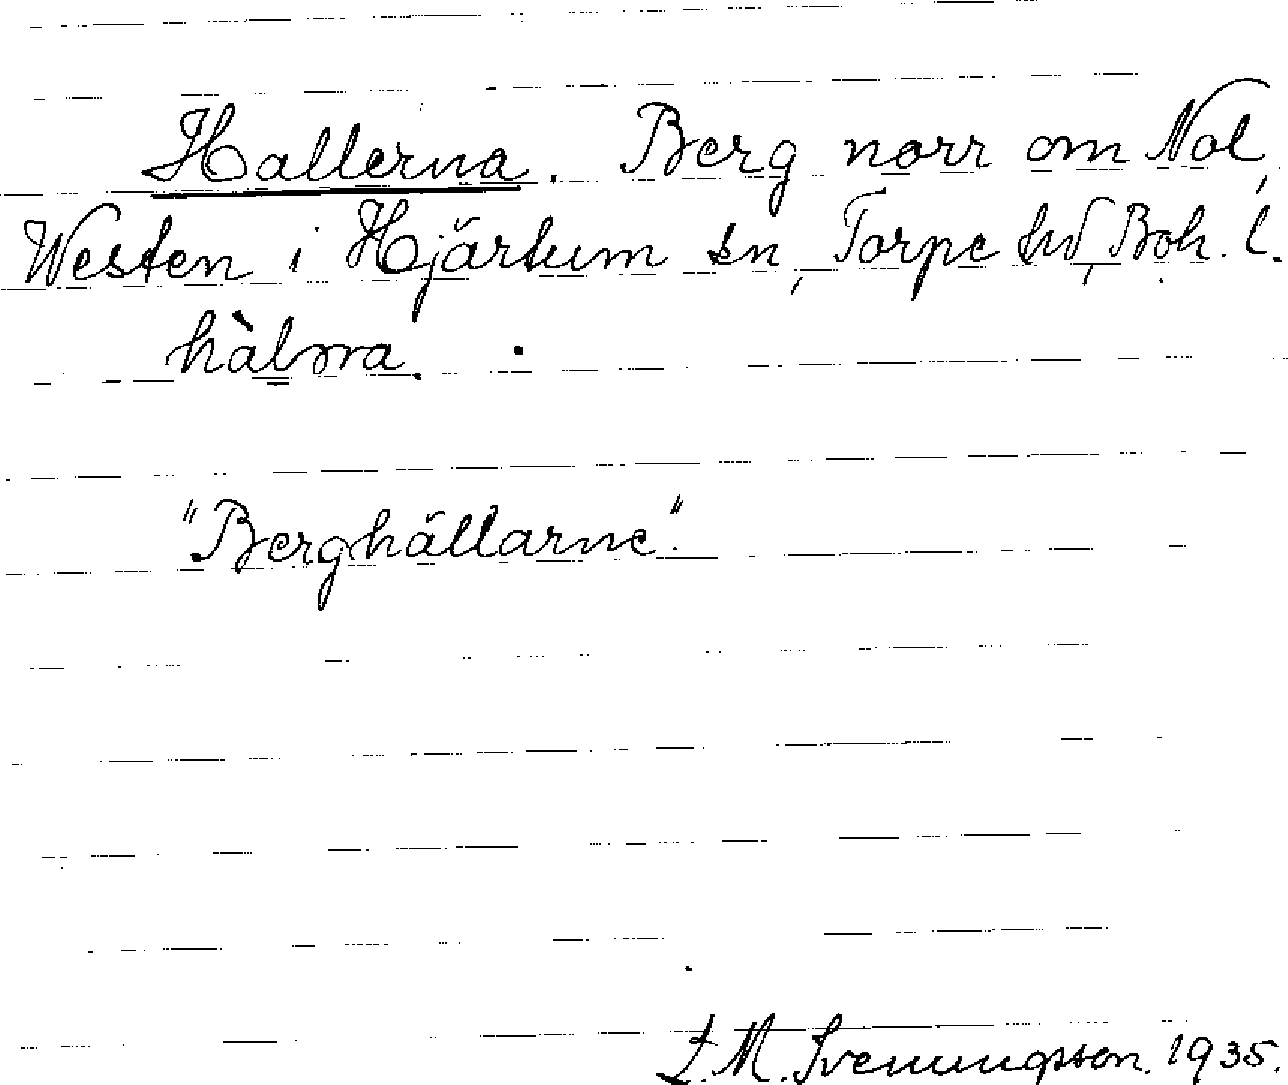 Hallerna. Berg norr om Nol,
Westen i Hjärtum sn, Torpe hd, Boh. l.
hàlnra.
"Berghällarne".
L.M. Svenungsson. 1935.